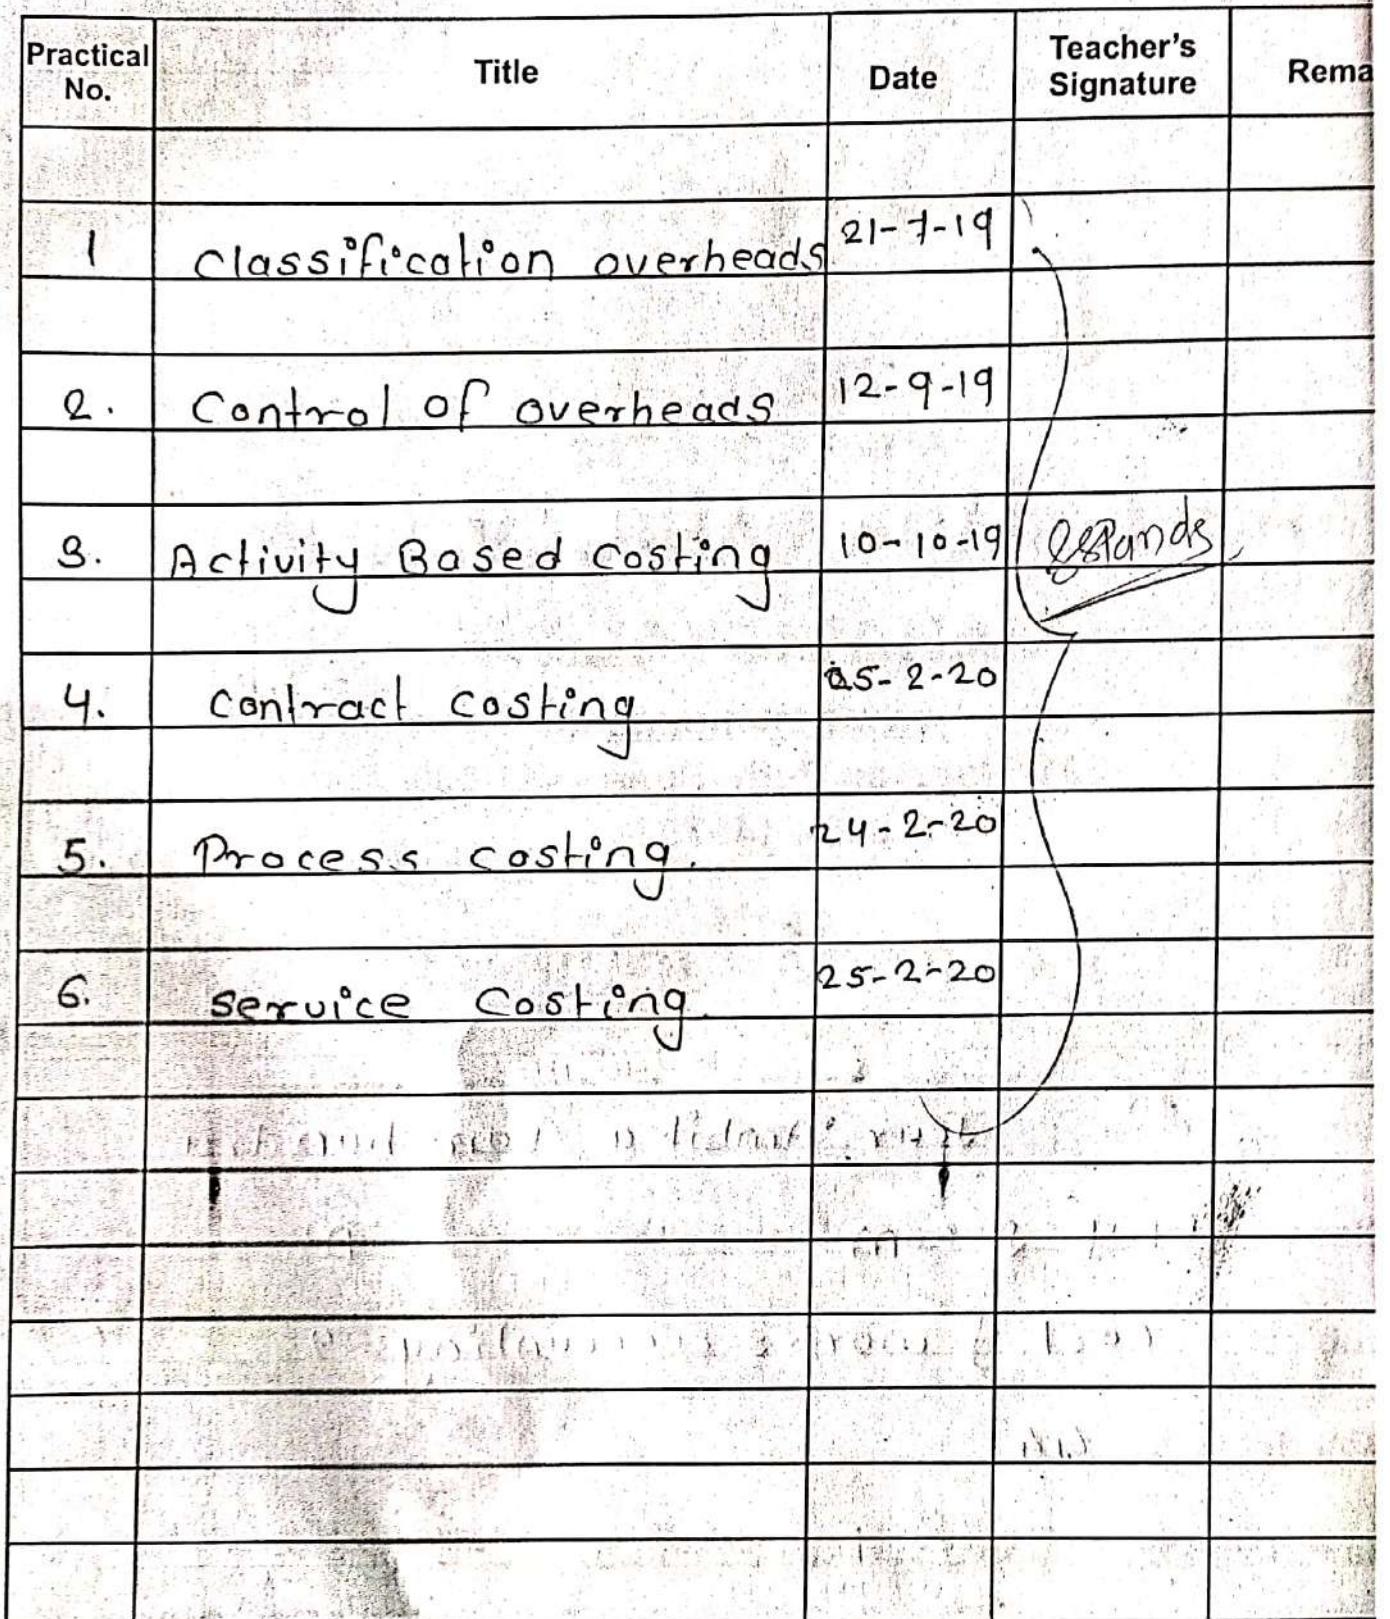 Practical No. Title Date Teacher's Signature Rema
1 Classification overheads 21-7-19
2. Control of overheads 12-9-19
3. Activity Based Costing 10-10-19
4. Contract costing 05-2-20
5. Process costing. 24-2-20
6. Service Costing. 25-2-20